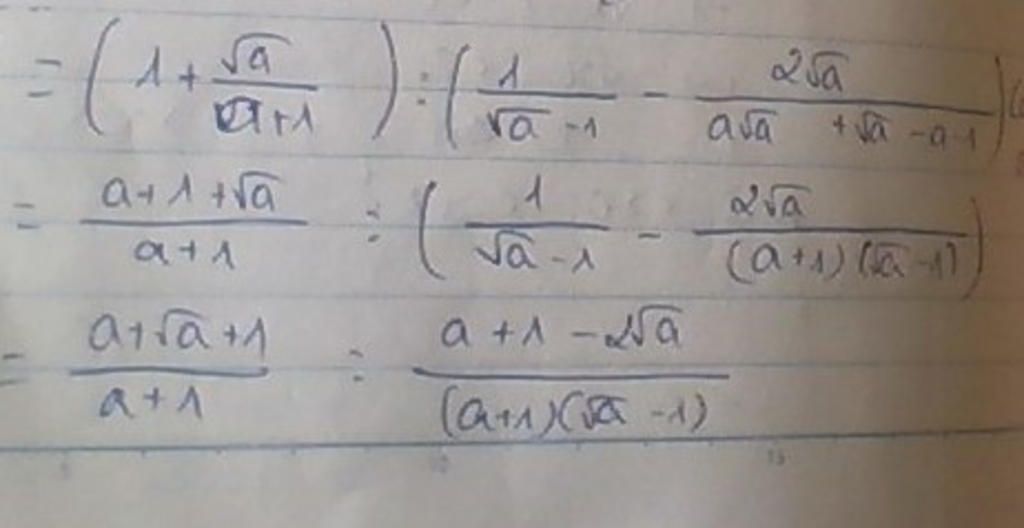 = ( 1 + √a / a+1 ) : ( 1 / √a - 1 - 2√a / a√a + √a - a - 1 )
= a + 1 + √a / a + 1 : ( 1 / √a - 1 - 2√a / (a+1)(√a - 1) )
= a + √a + 1 / a + 1 : a + 1 - 2√a / (a+1)(√a - 1)
10 15